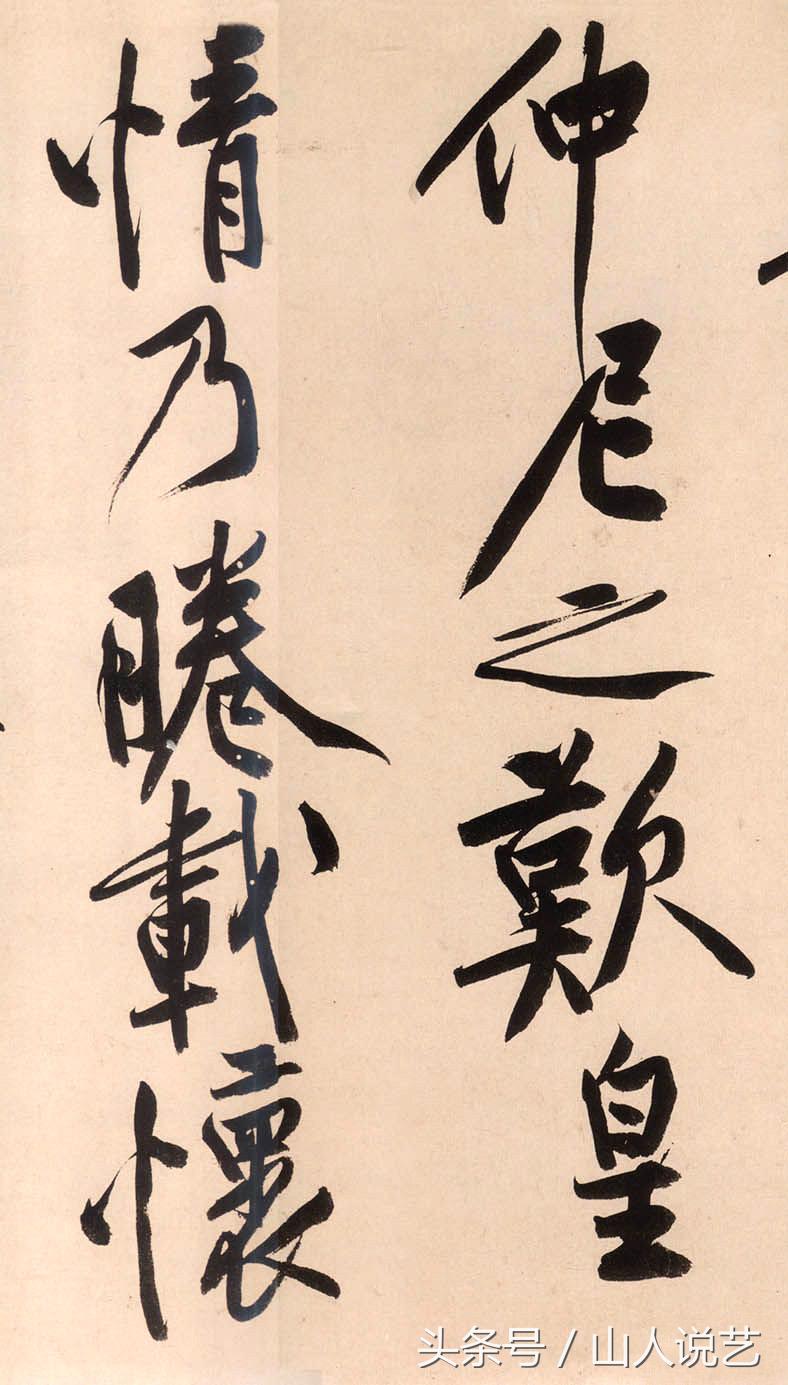 仲尼之歎皇
情乃睠載懷
头条号 / 山人说艺